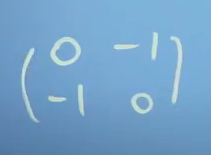 0 -1
-1 0